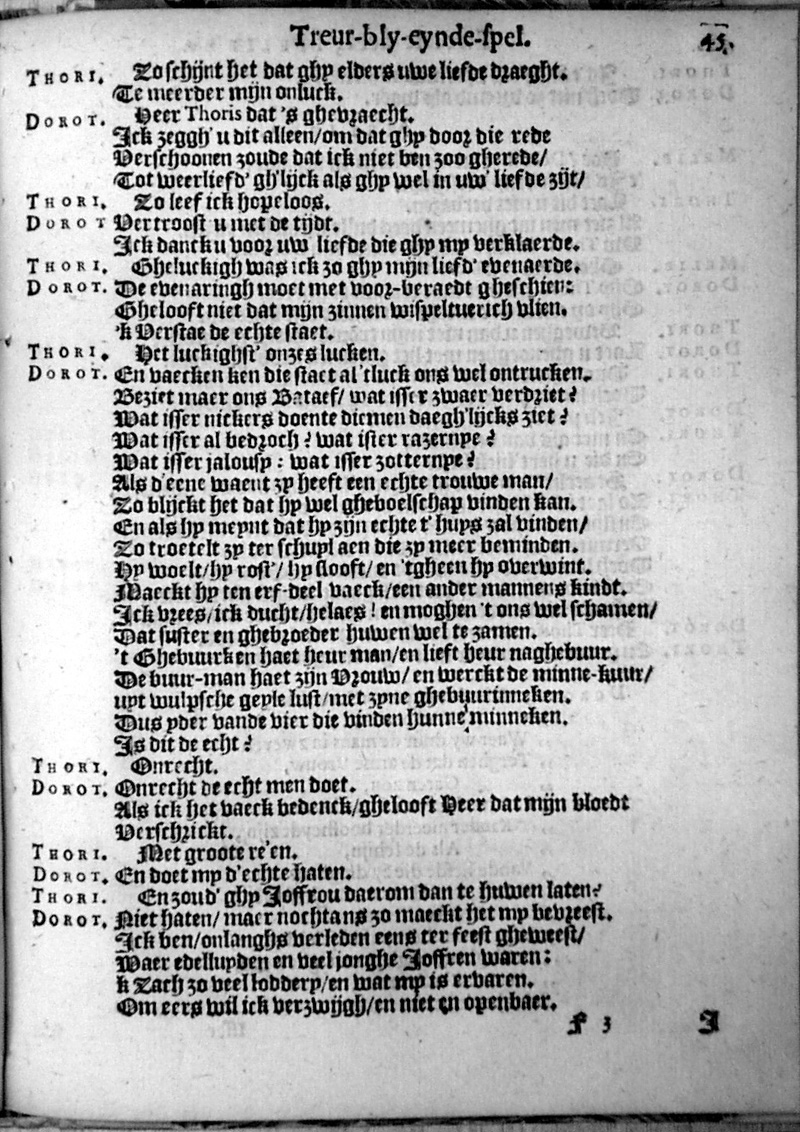 Treur-bly-eynde-spel. 45.
THORI. Zo schijnt het dat ghy elders uwe liefde draeght.
Te meerder mijn onluck.
DOROT. Heer Thoris dat 's ghevraecht.
Ick zeggh' u dit alleen/om dat ghy door die rede
Verschoonen zoude dat ick niet ben zoo gherede/
Tot weerliefd' gh'lijck als ghy wel in uw' liefde zijt/
THORI. Zo leef ick hopeloos.
DOROT Vertroost u met de tijdt.
Ick danck u voor uw liefde die ghy my verklaerde.
THORI. Gheluckigh was ick zo ghy mijn liefd' evenaerde.
DOROT. De evenaringh moet met voor-beraedt gheschien:
Ghelooft niet dat mijn zinnen wispeltuerich vlien.
'k Verstae de echte staet.
THORI. Het luckighst' onzes lucken.
DOROT. En vaecken ken die staet al 'tluck ons wel ontrucken.
Beziet maer ons Bataef/ wat isser zwaer verdriet?
Wat isser nickers doente diemen daegh'lijcks ziet?
Wat isser al bedroch? wat ister razernye?
Wat isser jalousy: wat isser zotternye?
Als d'eene waent zy heeft een echte trouwe man/
Zo blijckt het dat hy wel gheboelschap vinden kan.
En als hy meynt dat hy zijn echte t'huys zal vinden/
Zo troetelt zy ter schuyl aen die zy meer beminden.
Hy woelt/hy rost'/ hy slooft/ en 'tgheen hy overwint.
Maeckt hy ten erf-deel vaeck/een ander mannens kindt.
Ick vrees/ick ducht/helaes! en moghen 't ons wel schamen/
Dat suster en ghebroeder huwen wel te zamen.
't Ghebuurken haet heur man/en lieft heur naghebuur.
De buur-man haet zijn Vrouw/ en werckt de minne-kuur/
uyt wulpsche geyle lust/met zyne ghebuurinneken.
Dus yder vande vier die vinden hunne minneken.
Is dit de echt?
THORI. Onrecht.
DOROT. Onrecht de echt men doet.
Als ick het vaeck bedenck/ghelooft Heer dat mijn bloedt
Verschrickt.
THORI. Met groote re'en.
DOROT. En doet my d'echte haten.
THORI. En zoud' ghy Joffrou daerom dan te huwen laten?
DOROT. Niet haten/ maer nochtans zo maeckt het my bevreest.
Ick ben/onlanghs verleden eens ter feest gheweest/
Waer edelluyden en veel jonghe Joffren waren:
k Zach zo veel loddery/en wat my is ervaren.
Om eers wil ick verzwijgh/en niet en openbaer.
F 3 I